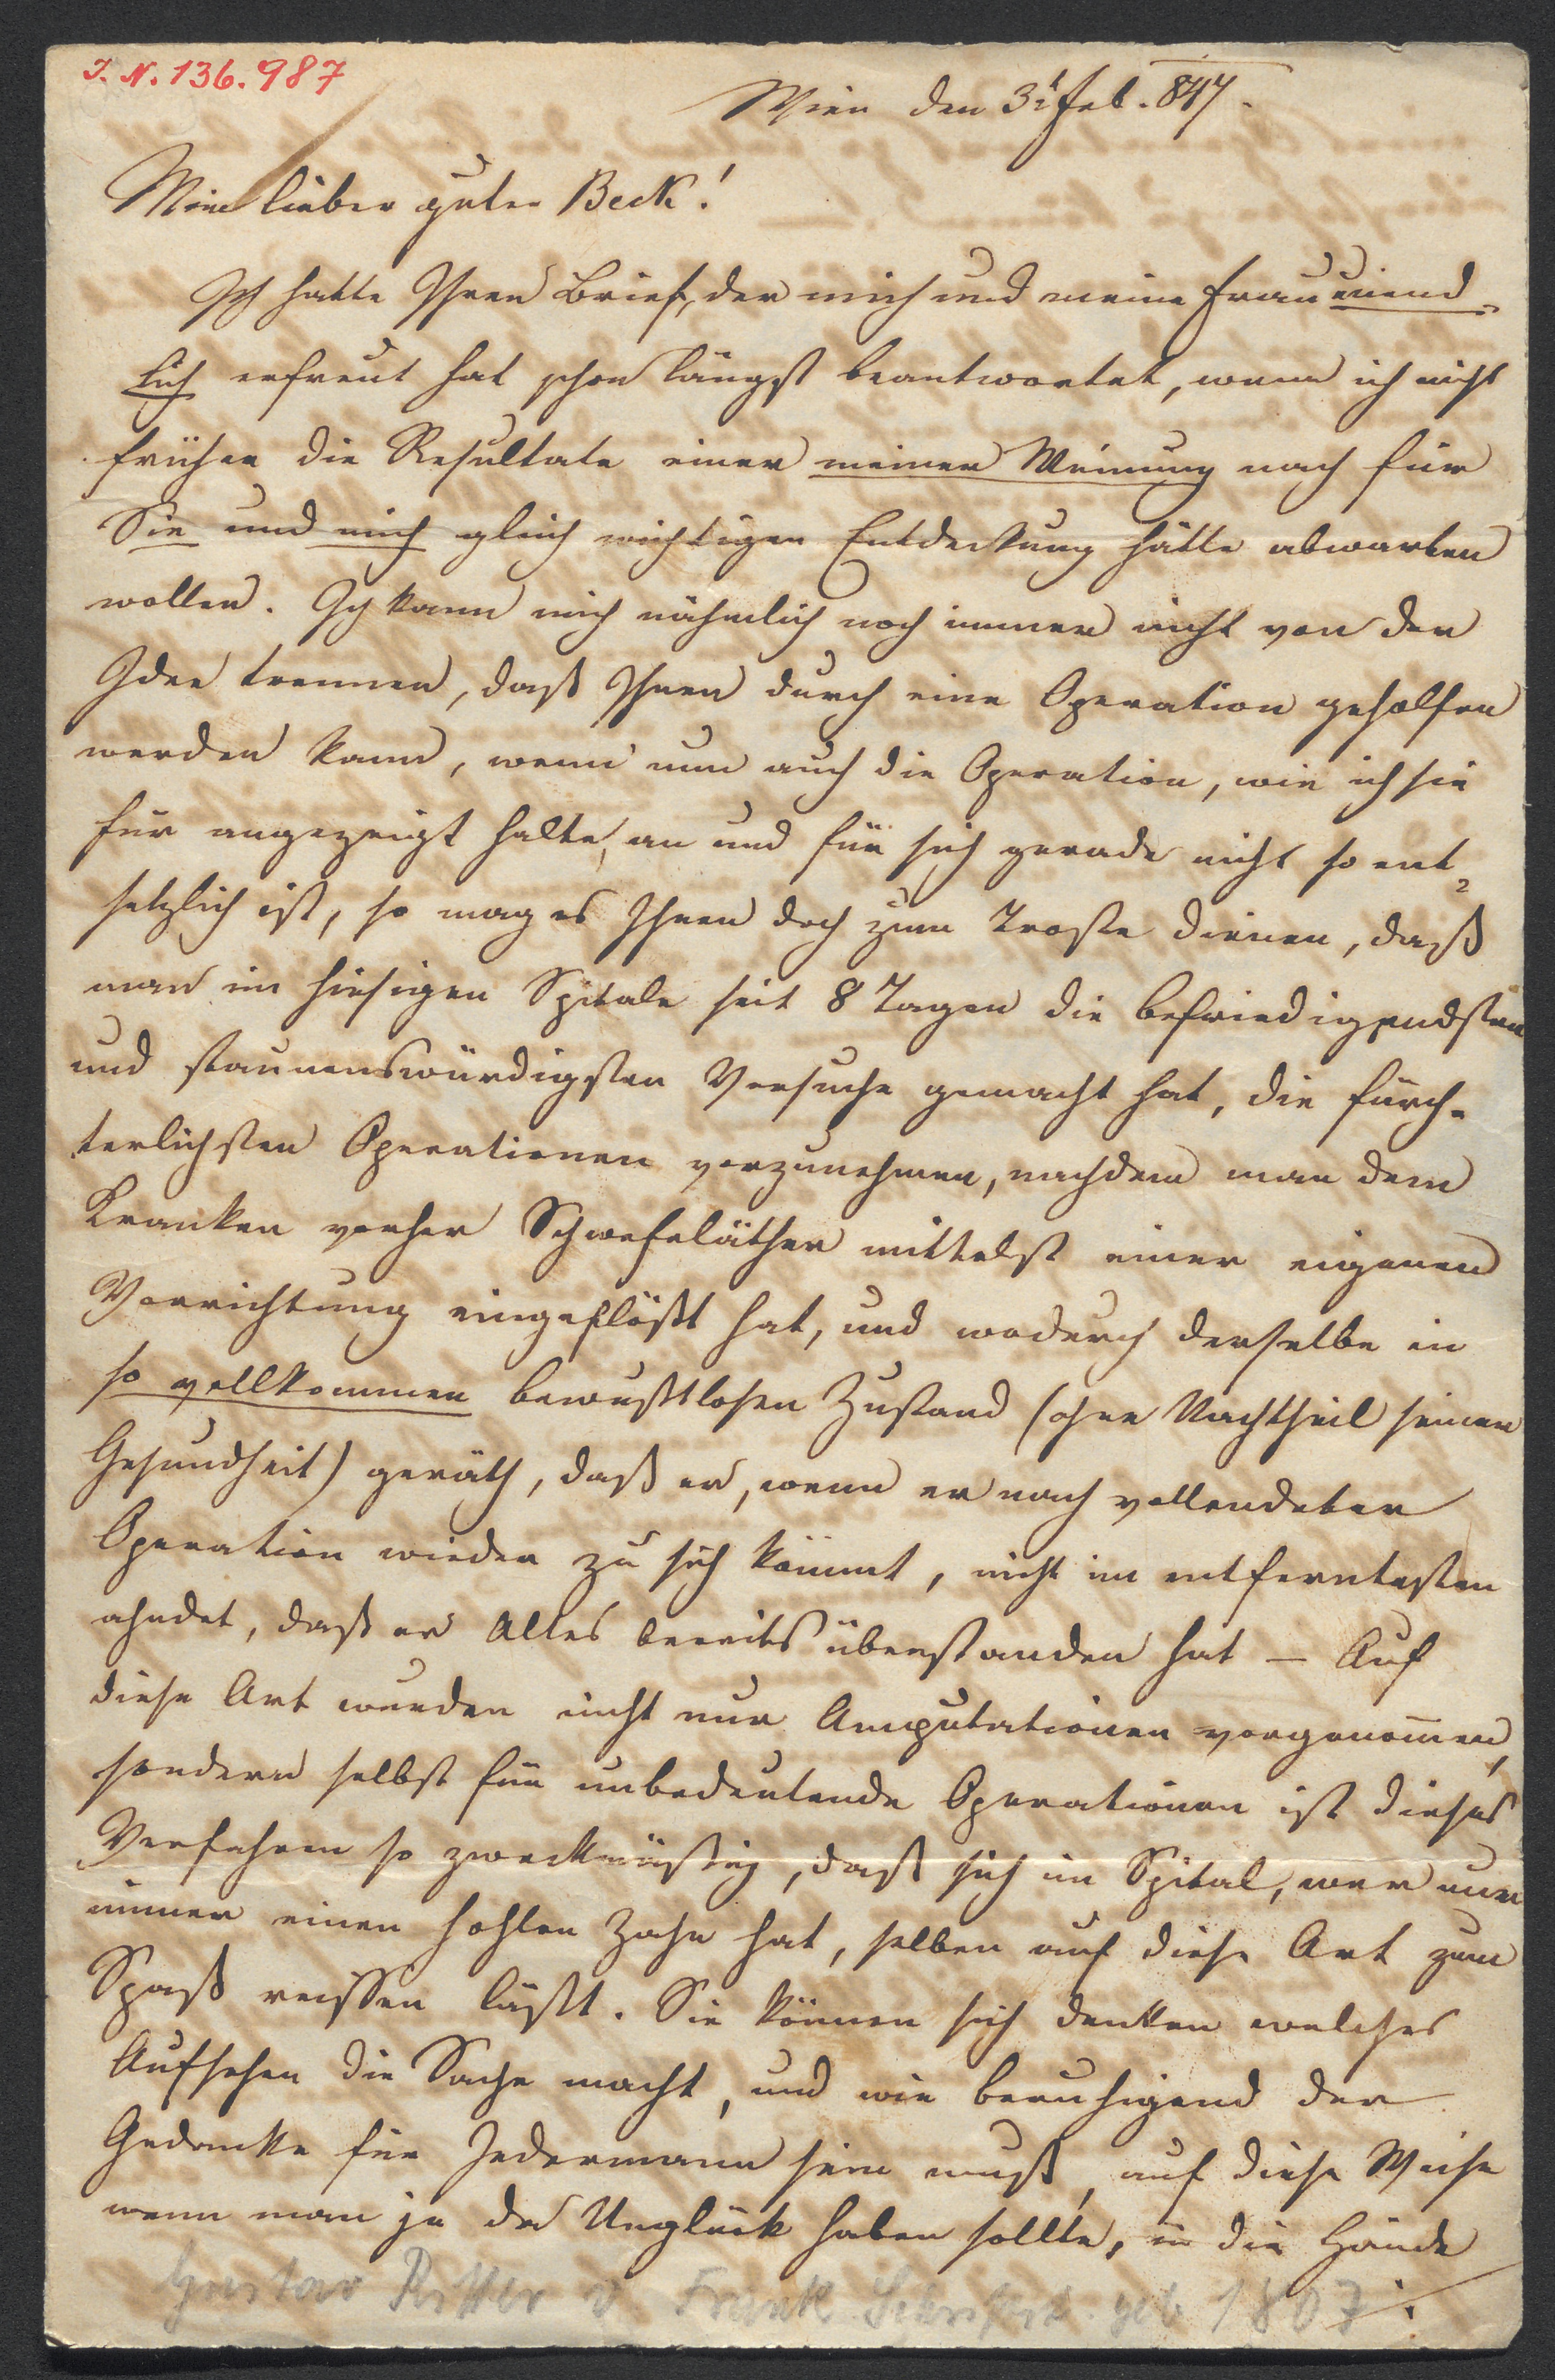 I. N. 136.987
Wien den 3t Feb. 847.
Mein lieber guter Beck!
Ich hätte Ihren Brief, der mich und meine Frau unend-
lich erfreut hat schon längst beantwortet, wenn ich nicht
früher die Resultate einer meiner Meinung nach für
Sie und mich gleich wichtigen Entdeckung hätte abwarten
wollen. Ich kann mich nähmlich noch immer nicht von der
Idee trennen, daß Ihnen durch eine Operation geholfen
werden kann, wenn nun auch die Operation, wie ich sie
für angezeigt halte, an und für sich gerade nicht so ent-
setzlich ist, so mag es Ihnen doch zum Troste dienen, daß
man im hiesigen Spitale seit 8 Tagen die befriedigendsten
und staunenswürdigsten Versuche gemacht hat, die fürch-
terlichsten Operationen vorzunehmen, nachdem man dem
Kranken vorher Schwefeläther mittelst einer eigenen
Vorrichtung eingeflößt hat, und wodurch derselbe in
so vollkommen bewußtlosen Zustand (ohne Nachtheil seiner
Gesundheit) geräth, daß er, wenn er nach vollendeter
Operation wieder zu sich kömmt, nicht im entferntesten
ahndet, daß er Alles bereits überstanden hat – Auf
diese Art wurden nicht nur Amputationen vorgenom̅en,
sondern selbst für unbedeutende Operationen ist dieses
Verfahren so zweckmäßig, daß sich im Spital, wer nur
immer einen hohlen Zahn hat, selben auf diese Art zum
Spaß reissen läßt. Sie können sich denken welches
Aufsehen die Sache macht, und wie beruhigend der
Gedanke für Jedermann sein muß, auf diese Weise
wenn man je das Unglück haben sollte, in die Hände
Gustav Ritter v. Frank Schriftst. geb 1807